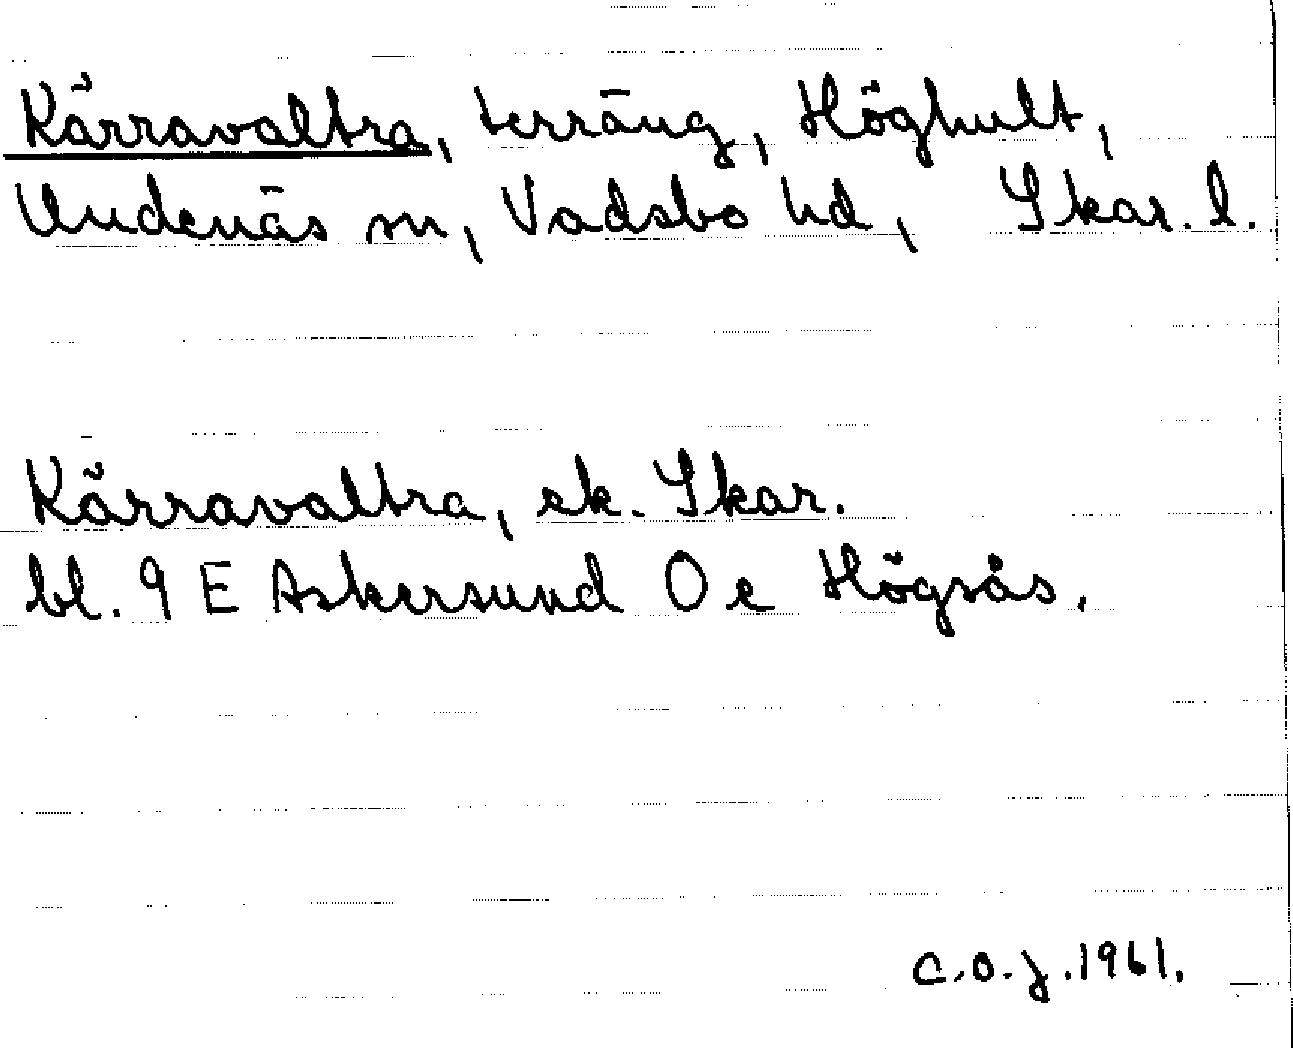 Kärravaltra, terräng, Höghult,
Undenäs sn, Vadsbo hd, Skar. l.
Kärravaltra, ek. Skar.
bl. 9 E Askersund 0 e Högsås.
C.O.J. 1961.